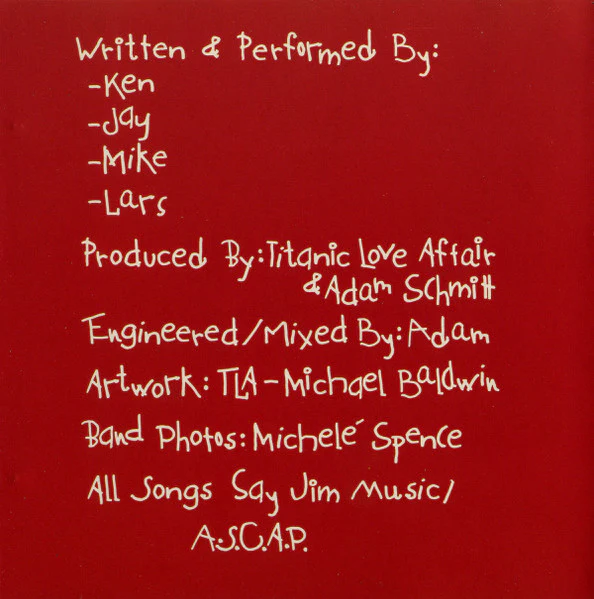 Written & Performed By:
-Ken
-Jay
-Mike
-Lars
Produced By: Titanic Love Affair
& Adam Schmitt
Engineered/Mixed By: Adam
Artwork: TLA - Michael Baldwin
Band Photos: Michelé Spence
All Songs Say Jim Music/
A.S.C.A.P.